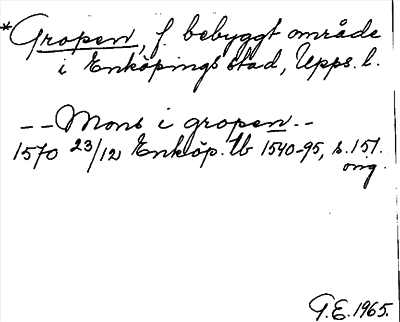 *Gropen, f. bebyggt område
i Enköpings stad, Upps. l.
-- Mons i gropen --
1570 23/12 Enköp. tb 1540-95, s. 151.
orig.
G.E. 1965.